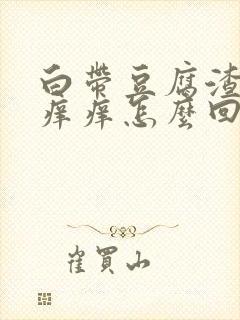 白带豆腐渣
痒痒怎麼回
崔買山